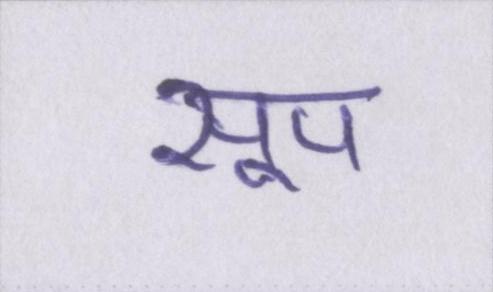 सूप